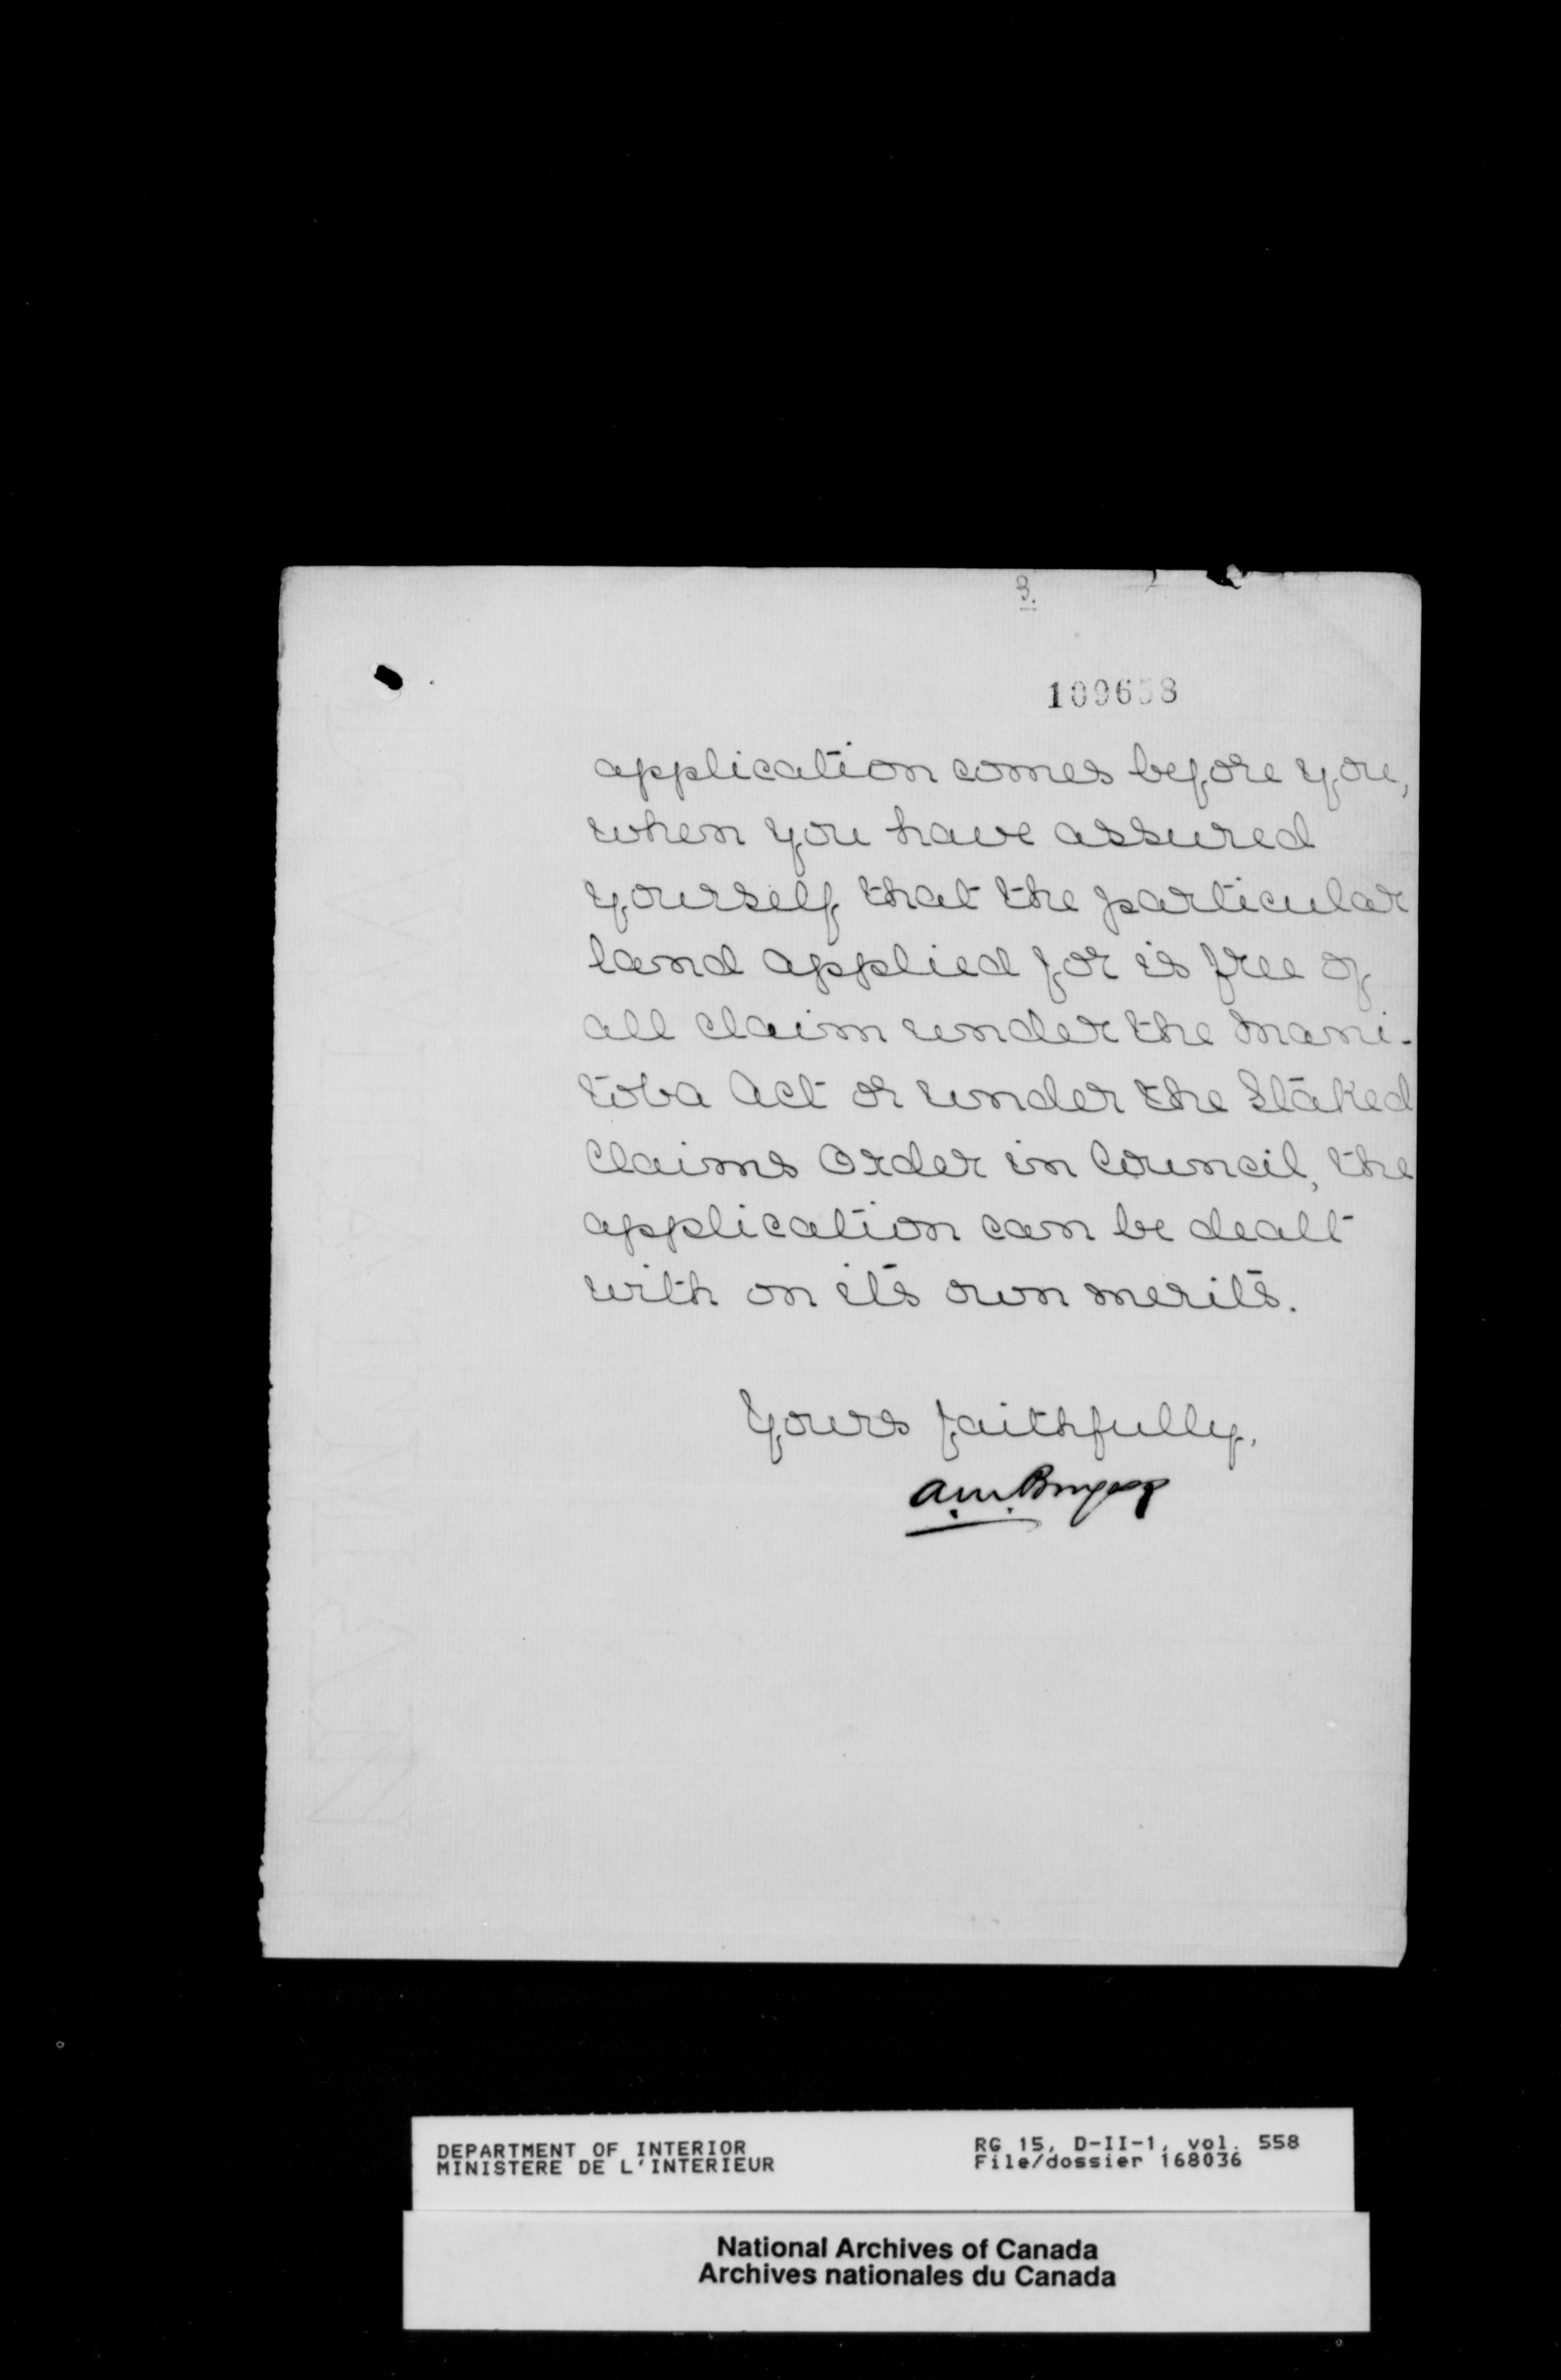 3.
109658
application comes before you,
when you have assured
yourself that the particular
land applied for is free of
all claim under the Mani-
toba Act or under the Staked
Claims Order in Council, the
application can be dealt
with on its own merits.
Yours faithfully,
A.M. Burgess
DEPARTMENT OF INTERIOR
MINISTERE DE L'INTERIEUR
RG 15, D-II-1, vol. 558
File/dossier 168036
National Archives of Canada
Archives nationales du Canada